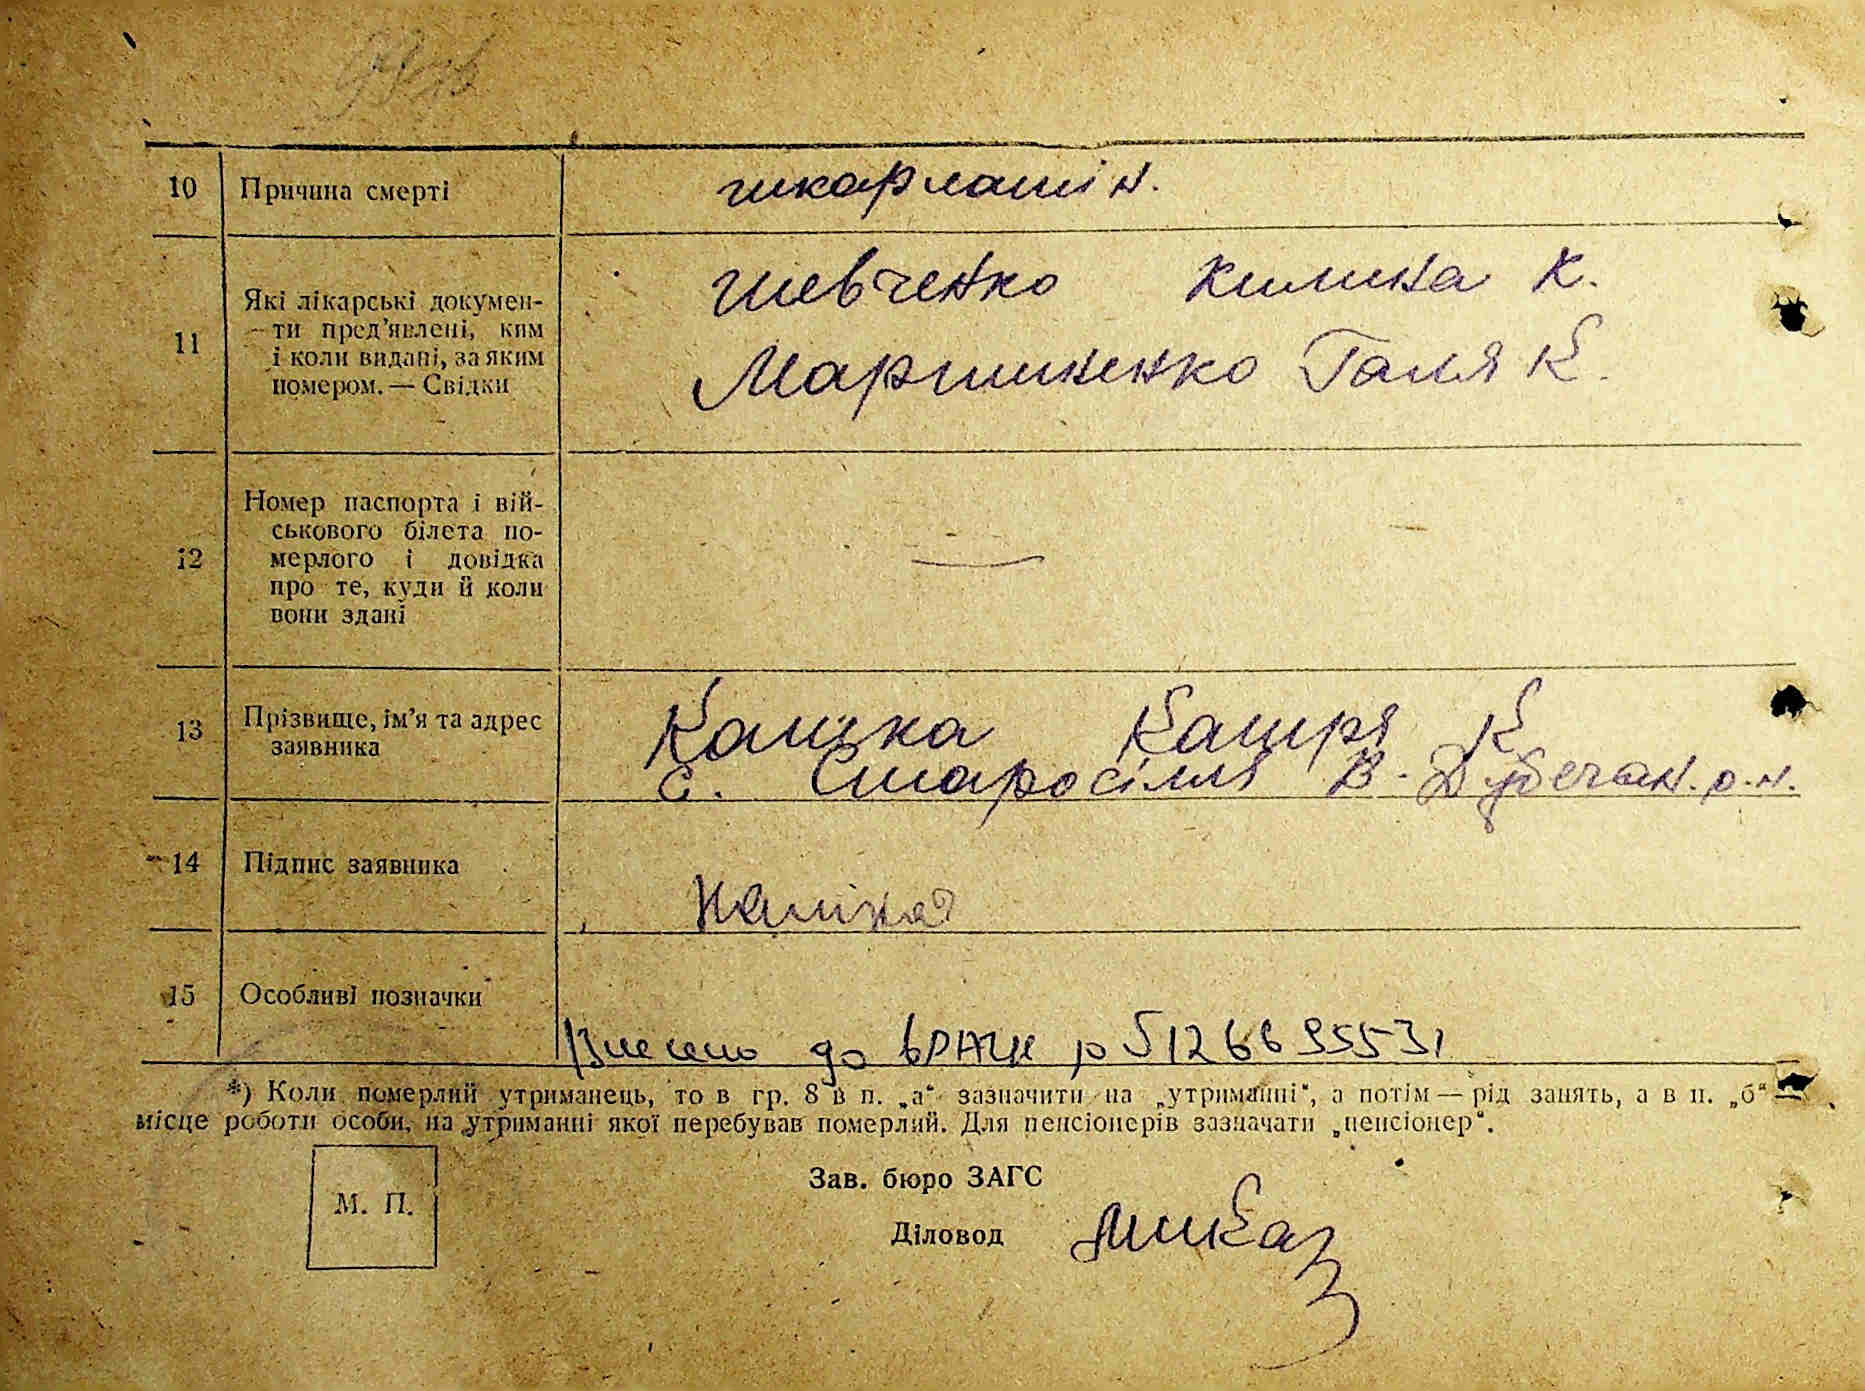 10 Причина смерті шкарлатін.
11 Які лікарські докумен-
ти пред'явлені, ким
і коли видані, за яким
номером. — Свідки
Шевченко Килина К.
Мартиненко Галя К.
12 Номер паспорта і вій-
ськового білета по-
мерлого і довідка
про те, куди й коли
вони здані
—
13 Прізвище, ім'я та адрес
заявника
Калика Катря К
С. Старосілля В-Дубечан. р-н.
14 Підпис заявника
15 Особливі позначки
Внесено до ДРАЦС
*) Коли померлий утриманець, то в гр. 8 в п. „а“ зазначити на „утриманні“, а потім — рід занять, а в п. „б“ —
місце роботи особи, на утриманні якої перебував померлий. Для пенсіонерів зазначати „пенсіонер“.
М. П.
Зав. бюро ЗАГС
Діловод